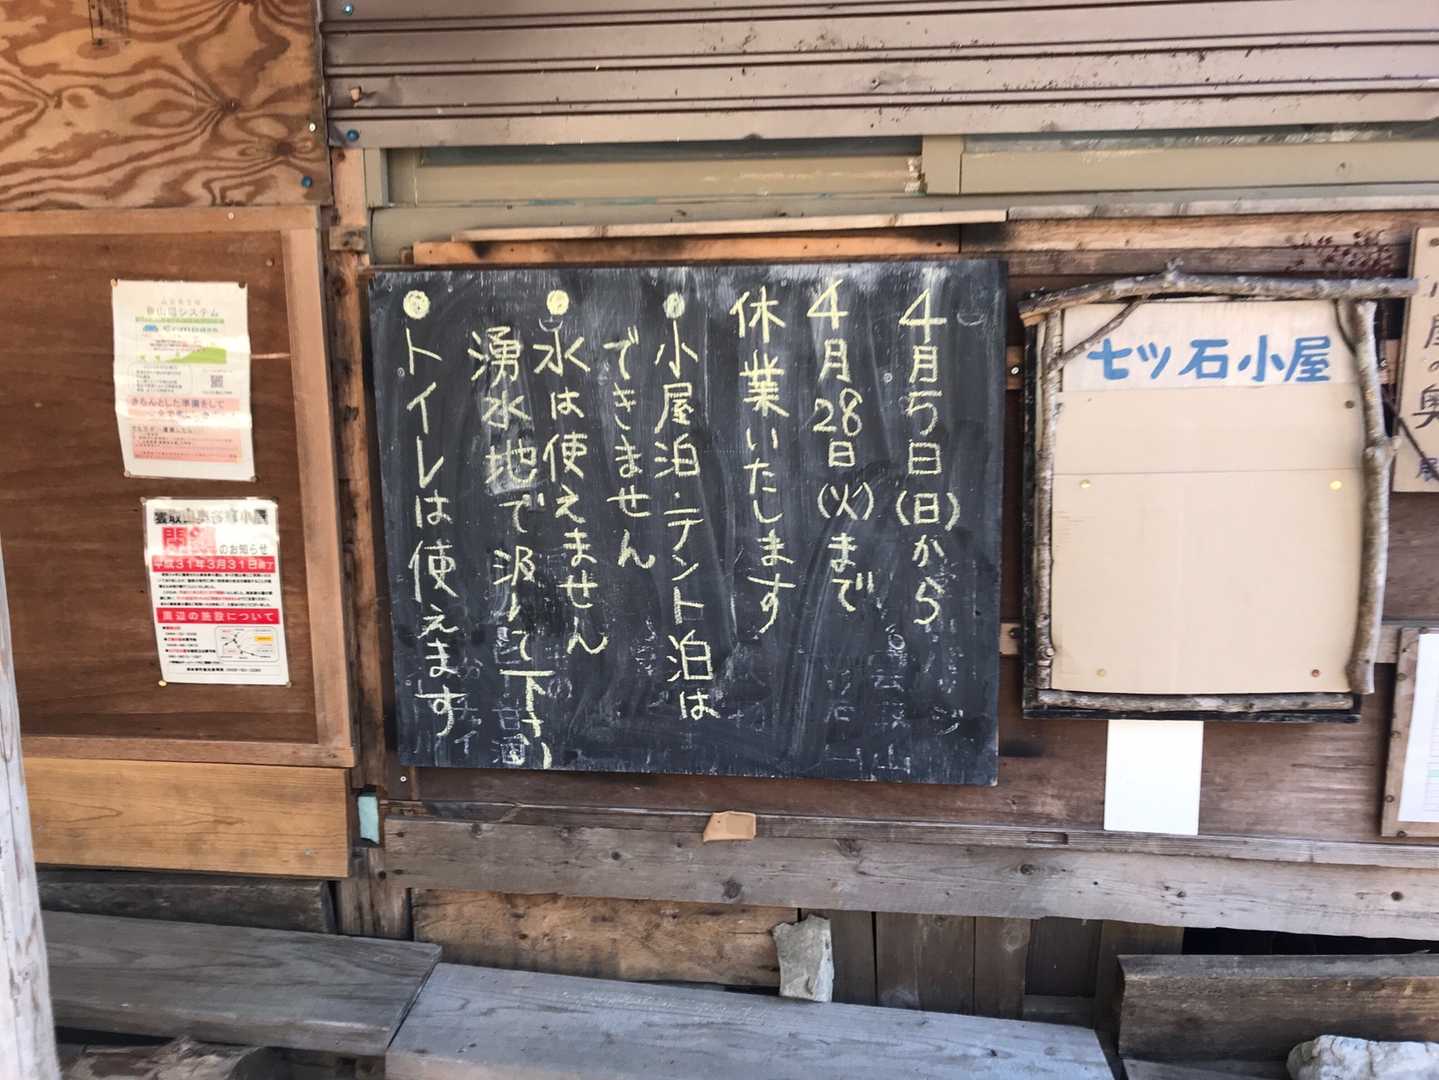 4月5日(日)から
4月28日(火)まで
休業いたします
小屋泊・テント泊は
できません
水は使えません
湧水地で汲んで下さい
トイレは使えます
七ツ石小屋
小屋の奥
登山届システム
Compass
きちんとした準備をして
雲取山奥多摩小屋
閉鎖のお知らせ
平成31年3月31日終了
周辺の施設について